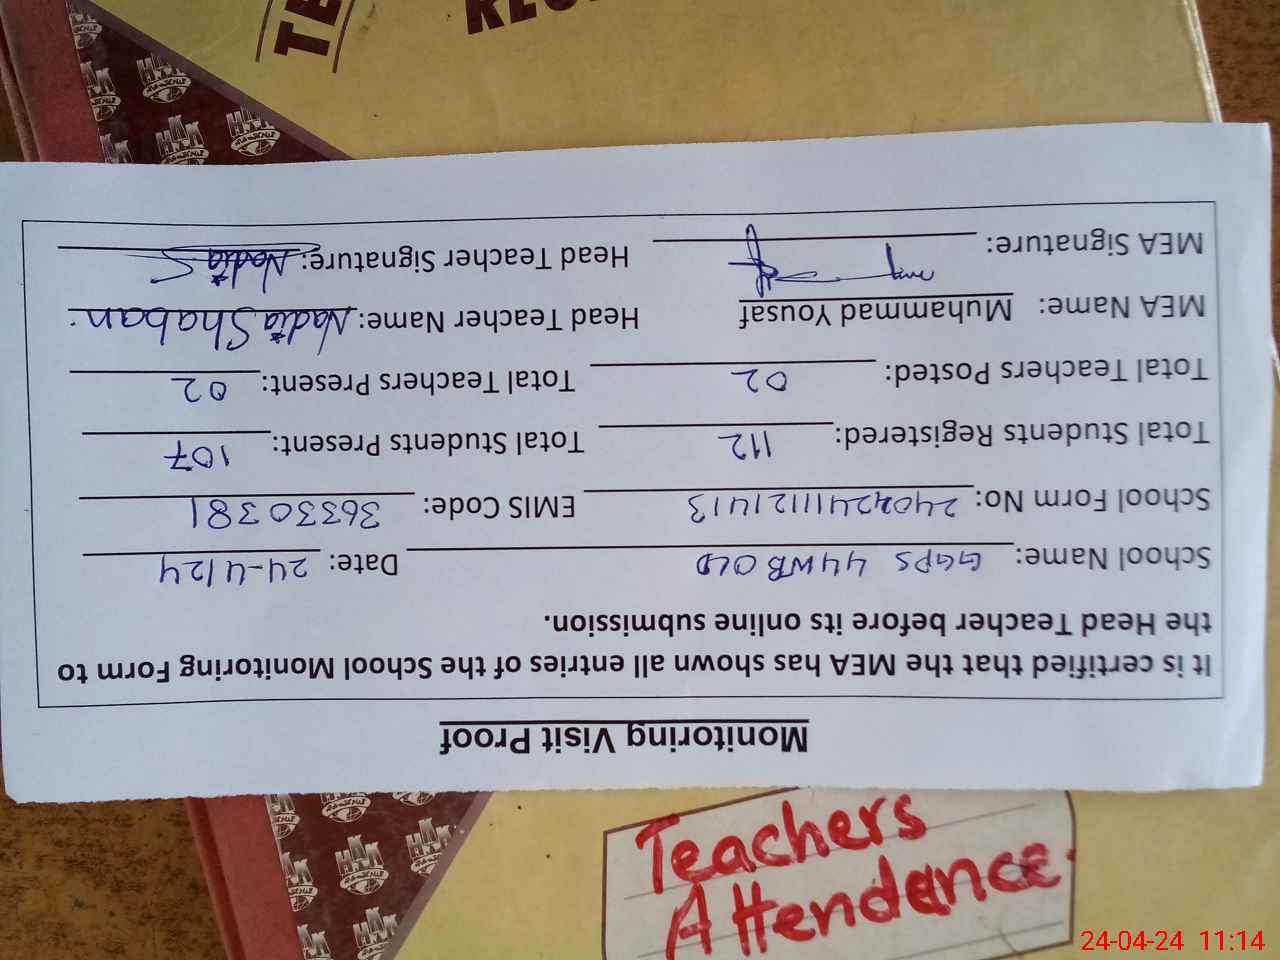 Monitoring Visit Proof
It is certified that the MEA has shown all entries of the School Monitoring Form to
the Head Teacher before its online submission.
School Name: GGPS 44WB OLD Date: 24-4/24
School Form No: EMIS Code: 36330381
Total Students Registered: 112 Total Students Present: 107
Total Teachers Posted: 02 Total Teachers Present: 02
MEA Name: Muhammad Yousaf Head Teacher Name: Nadia Shaban.
MEA Signature: Head Teacher Signature: Nadia S
Teachers
Attendance.
HAK
24-04-24 11:14